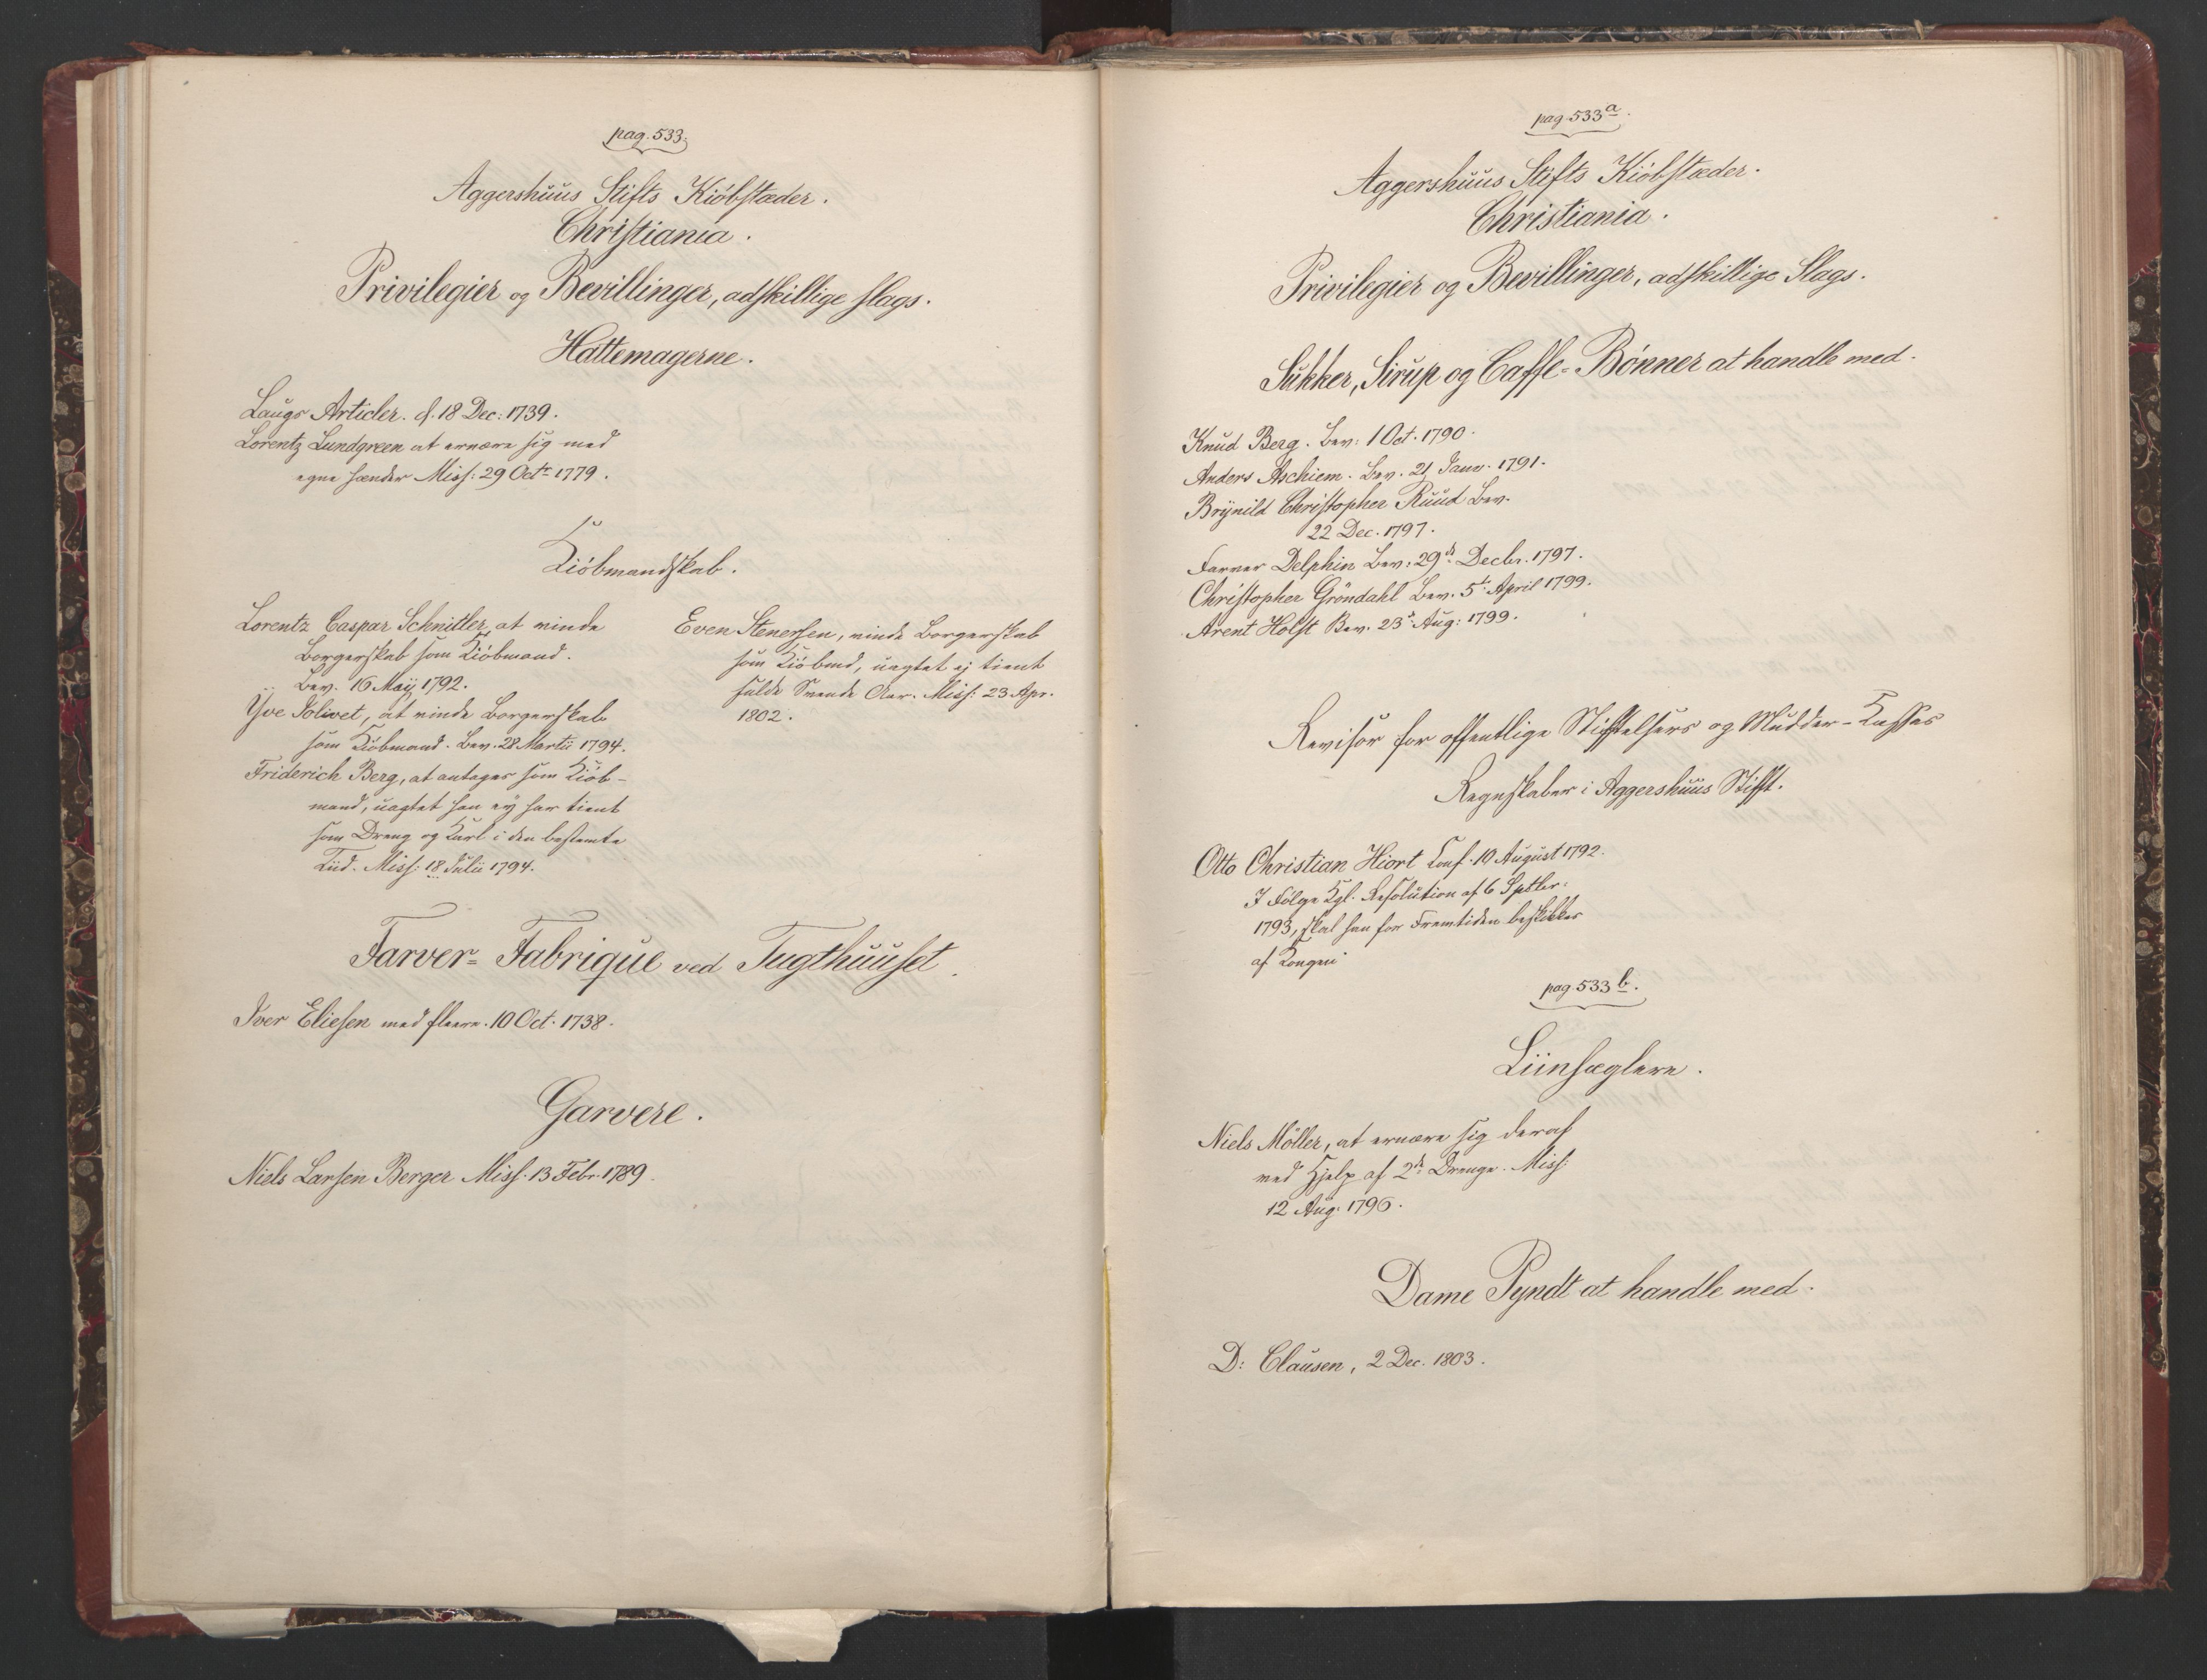 pag. 533.
Aggershuus Stifts Kiöbstæder.
Christiania.
Privilegier og Bevillinger, adskillige slags.
Hattemagerne.
Laugs Articler. d. 18 Dec: 1739.
Lorentz Lundgreen at ernære sig med
egne Hænder Miss: 29 Octr 1779.
Kiöbmandskab.
Lorentz Caspar Schnitler, at vinde
Borgerskab som Kiöbmand.
Bev. 16 Maij 1792.
Yve Jolivet, at vinde Borgerskab
som Kiöbmand. Bev. 28 Martii 1794.
Friderich Berg, at antages som Kiöb-
mand, uagtet han ey har tient
som Dreng og Karl i den bestemte
Tiid. Miss: 18 Julii 1794.
Even Stenersen, vinde Borgerskab
som Kiöbmd, uagtet ej tient
fulde Svende Aar. Miss: 23 Apr.
1802.
Farver-Fabrique ved Tugthuuset.
Iver Eliesen med fleere. 10 Oct. 1738.
Garvere.
Niels Larsen Berger Miss. 13 Febr. 1789.
pag. 533 a.
Aggershuus Stifts Kiöbstæder.
Christiania.
Privilegier og Bevillinger, adskillige Slags.
Sukker, Sirup og Caffe-Bönner at handle med.
Knud Berg. Bev: 1 Oct. 1790.
Anders Aschiem. Bev. 21 Janv. 1791.
Brynild Christopher Ruud Bev.
22 Dec. 1797.
Farver Delphin Bev: 29de Decbr. 1797.
Christopher Gröndahl Bev. 5t April 1799.
Arent Holst Bev. 23d Aug: 1799.
Revisor for offentlige Stiftelsers og Mudder-Kasses
Regnskaber i Aggershuus Stift.
Otto Christian Hiort Conf. 10 August 1792.
I Fölge Kgl. Resolution af 6 Septbr.
1793, skal han for Fremtiden beskikkes
af Kongen.
pag. 533 b.
Liinhæglere.
Niels Möller, at ernære sig deraf
ved Hjelp af 2de Drenge. Miss:
12 Aug. 1796.
Dame Pyndt at handle med.
D: Clausen, 2 Dec. 1803.